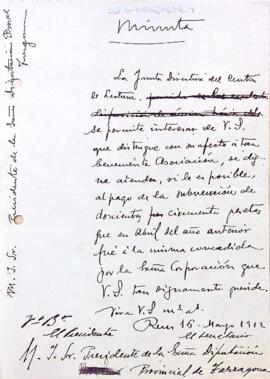 Minuta
La Junta Directiva del Centro
de Lectura,
se permite interesar de V. S.
que distingue con su afecto á tan
benemérita Asociación, se dig-
ne atender, si le es posible,
al pago de la subvención de
doscientas cincuenta pesetas
que en Abril del año anterior
fué á la misma concedida
por la Exma Corporación que
V. S. tan dignamente preside.
Viva V. S. m. a.
Reus 16 Mayo 1912
Vº Bº
El Presidente
El Secretario
M. I. Sr. Presidente de la Exma Diputación
Provincial de Tarragona
M. I. Sr. Presidente de la Exma Diputación Provl
Tarragona